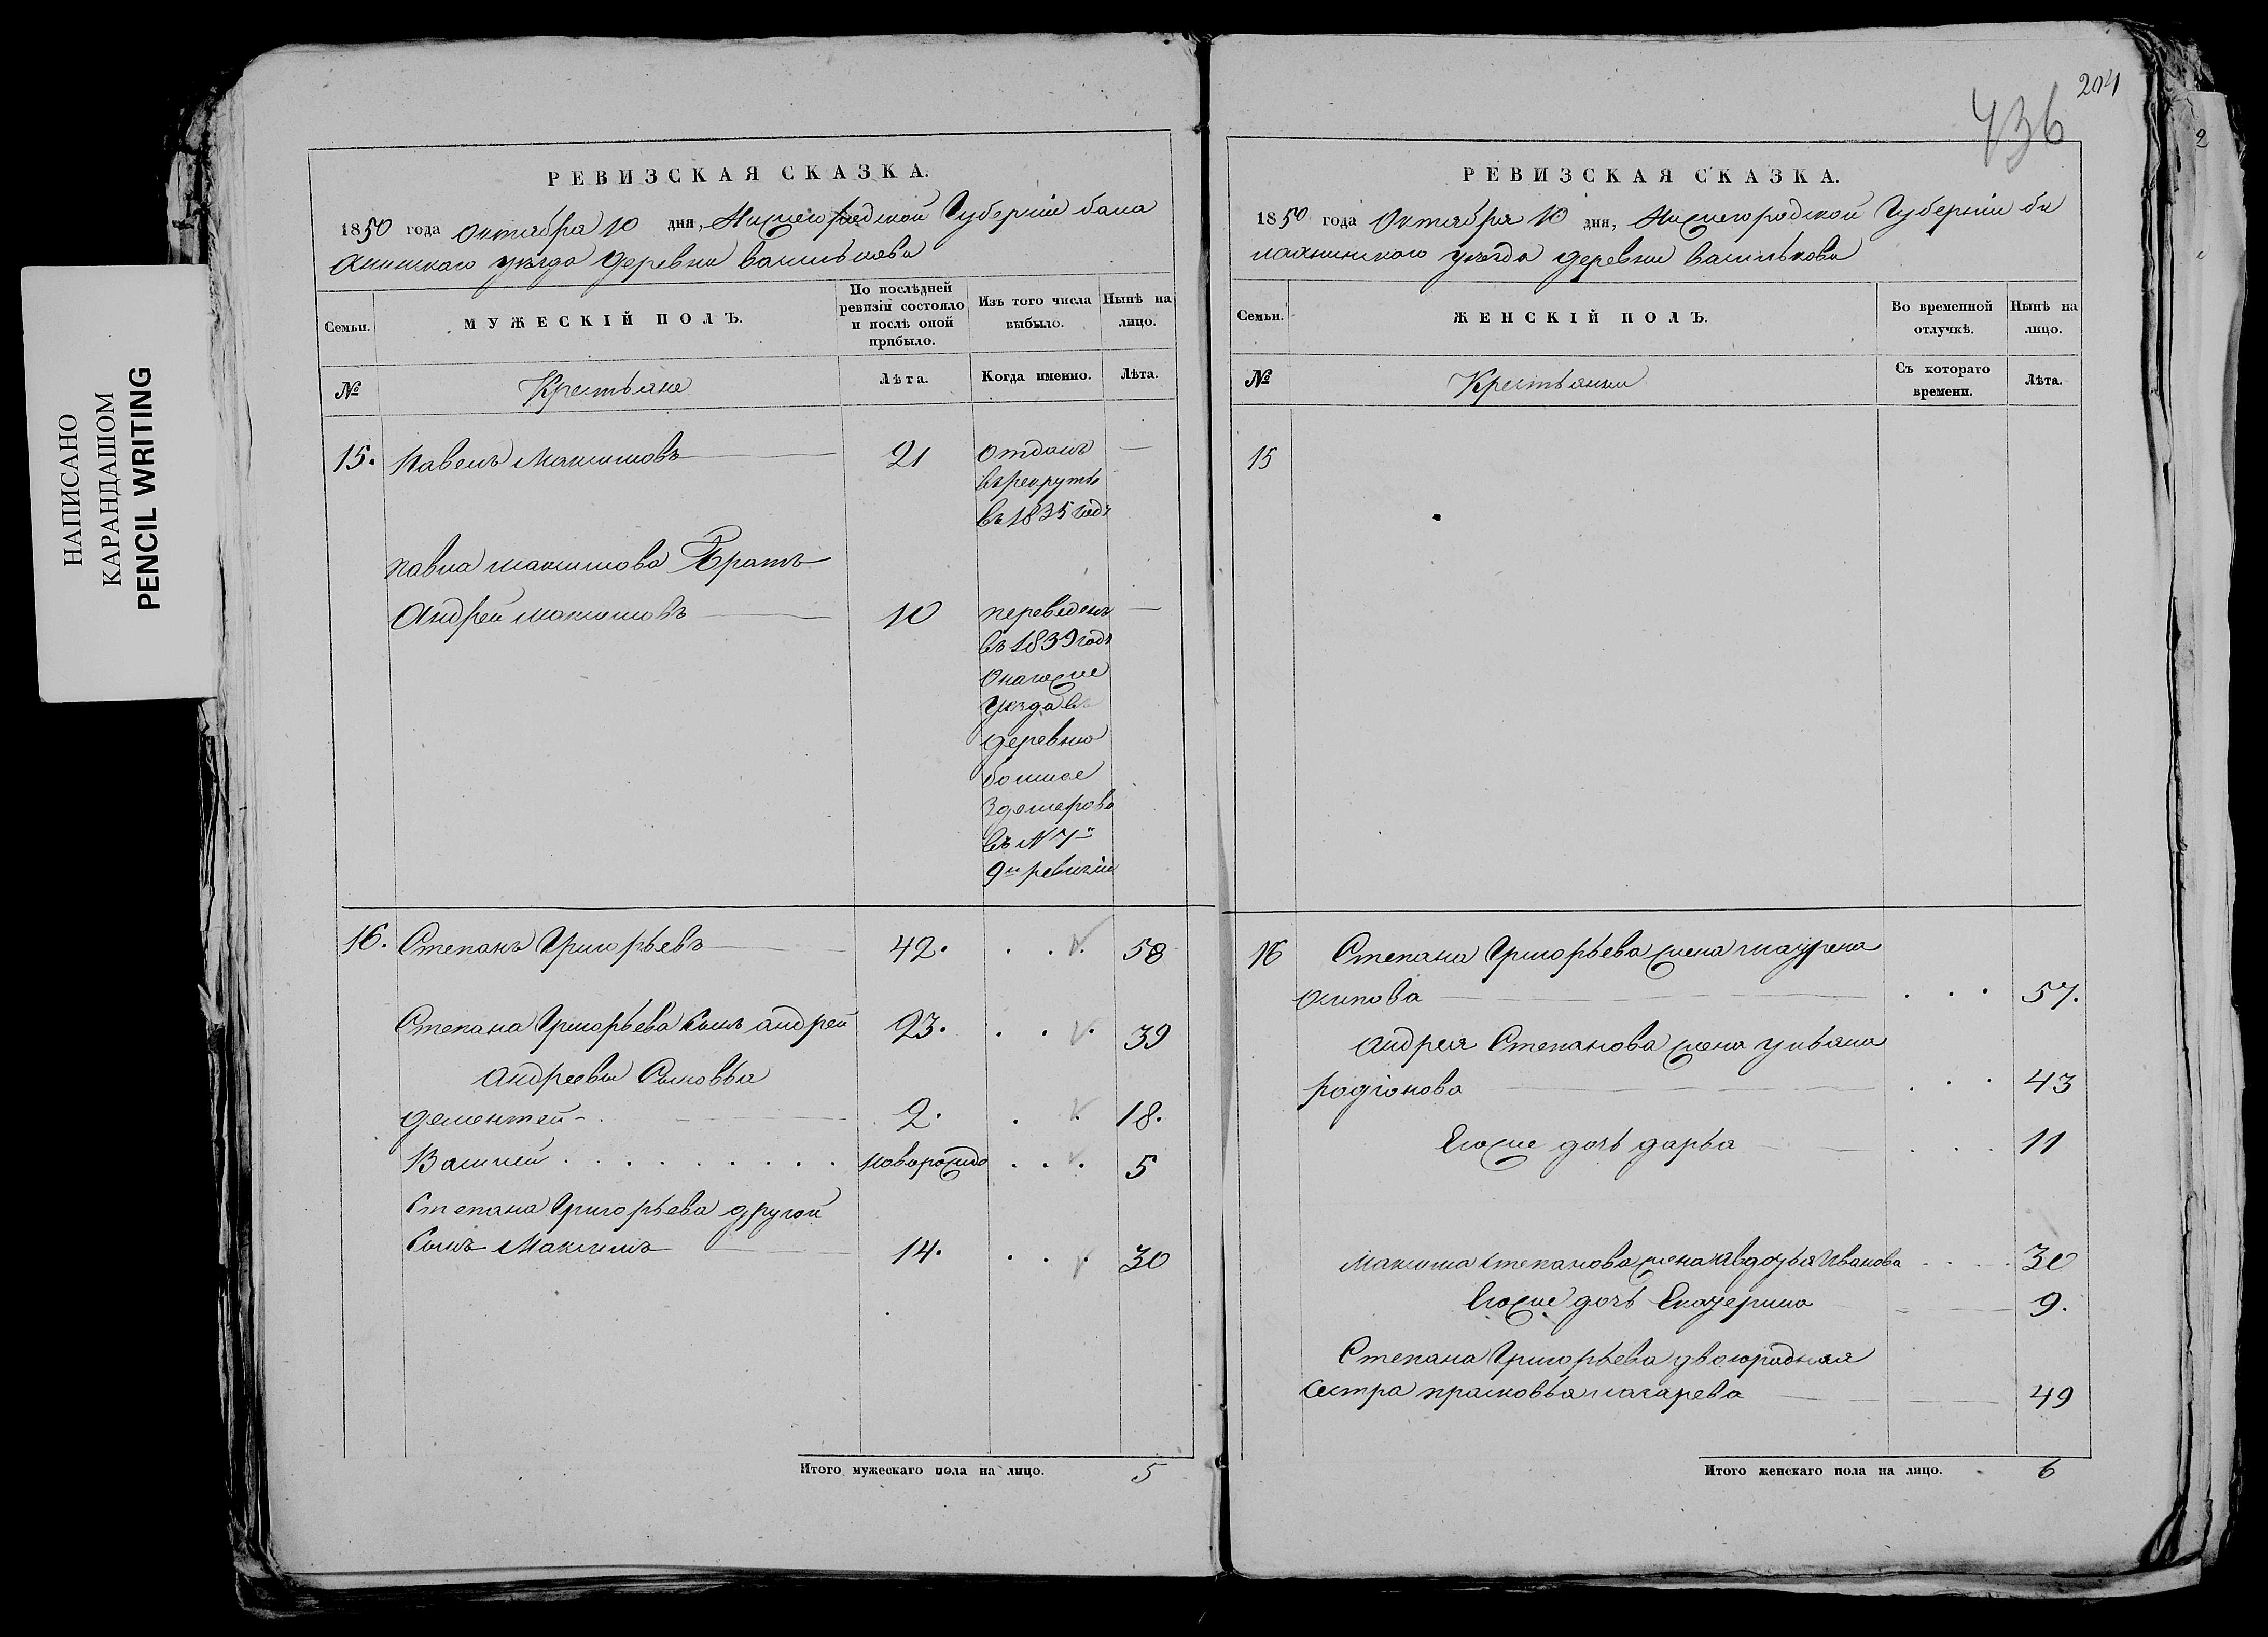 НАПИСАНО
КАРАНДАШОМ
PENCIL WRITING
РЕВИЗСКАЯ СКАЗКА.
1850 года Октября 10 дня, Нижегородской Губерніи бала
хнинскаго уезда деревни василькова
Семьи.
МУЖЕСКІЙ ПОЛЪ.
По послѣдней ревизіи состояло и послѣ оной прибыло.
Изъ того числа выбыло.
Нынѣ на лицо.
№
Крестьяне
Лѣта.
Когда именно.
Лѣта.
15. Павелъ Максимовъ 21 отданъ
въ рекруты
въ 1835 годъ
павла максимова Братъ
Андрей максимовъ 10 переведенъ
въ 1839 годъ
уезда въ
деревню
въ № 7й
9й ревизіи
16. Степанъ Григорьевъ 42. 58
Степана Григорьева сынъ андрей 23. 39
Андреевы Сыновья
дементей 2. 18.
Василей новорожде 5
Степана Григорьева другой
сынъ Максимъ 14. 30
Итого мужескаго пола на лицо. 5
204
436
РЕВИЗСКАЯ СКАЗКА.
1850 года Октября 10 дня, Нижегородской Губерніи ба
лахнинскаго уезда деревни василькова
Семьи.
ЖЕНСКІЙ ПОЛЪ.
Во временной отлучкѣ.
Нынѣ на лицо.
№
Крестьянки
Съ котораго времени.
Лѣта.
15
16 Степана Григорьева жена
осипова 57.
андрея Степанова жена ульяна
родіонова 43
Егоже дочь дарья 11
Максима степанова жена Авдотья Иванова 30
Егоже дочь Екатерина 9.
Степана Григорьева двоюродная
сестра прасковья 49
Итого женскаго пола на лицо. 6
2